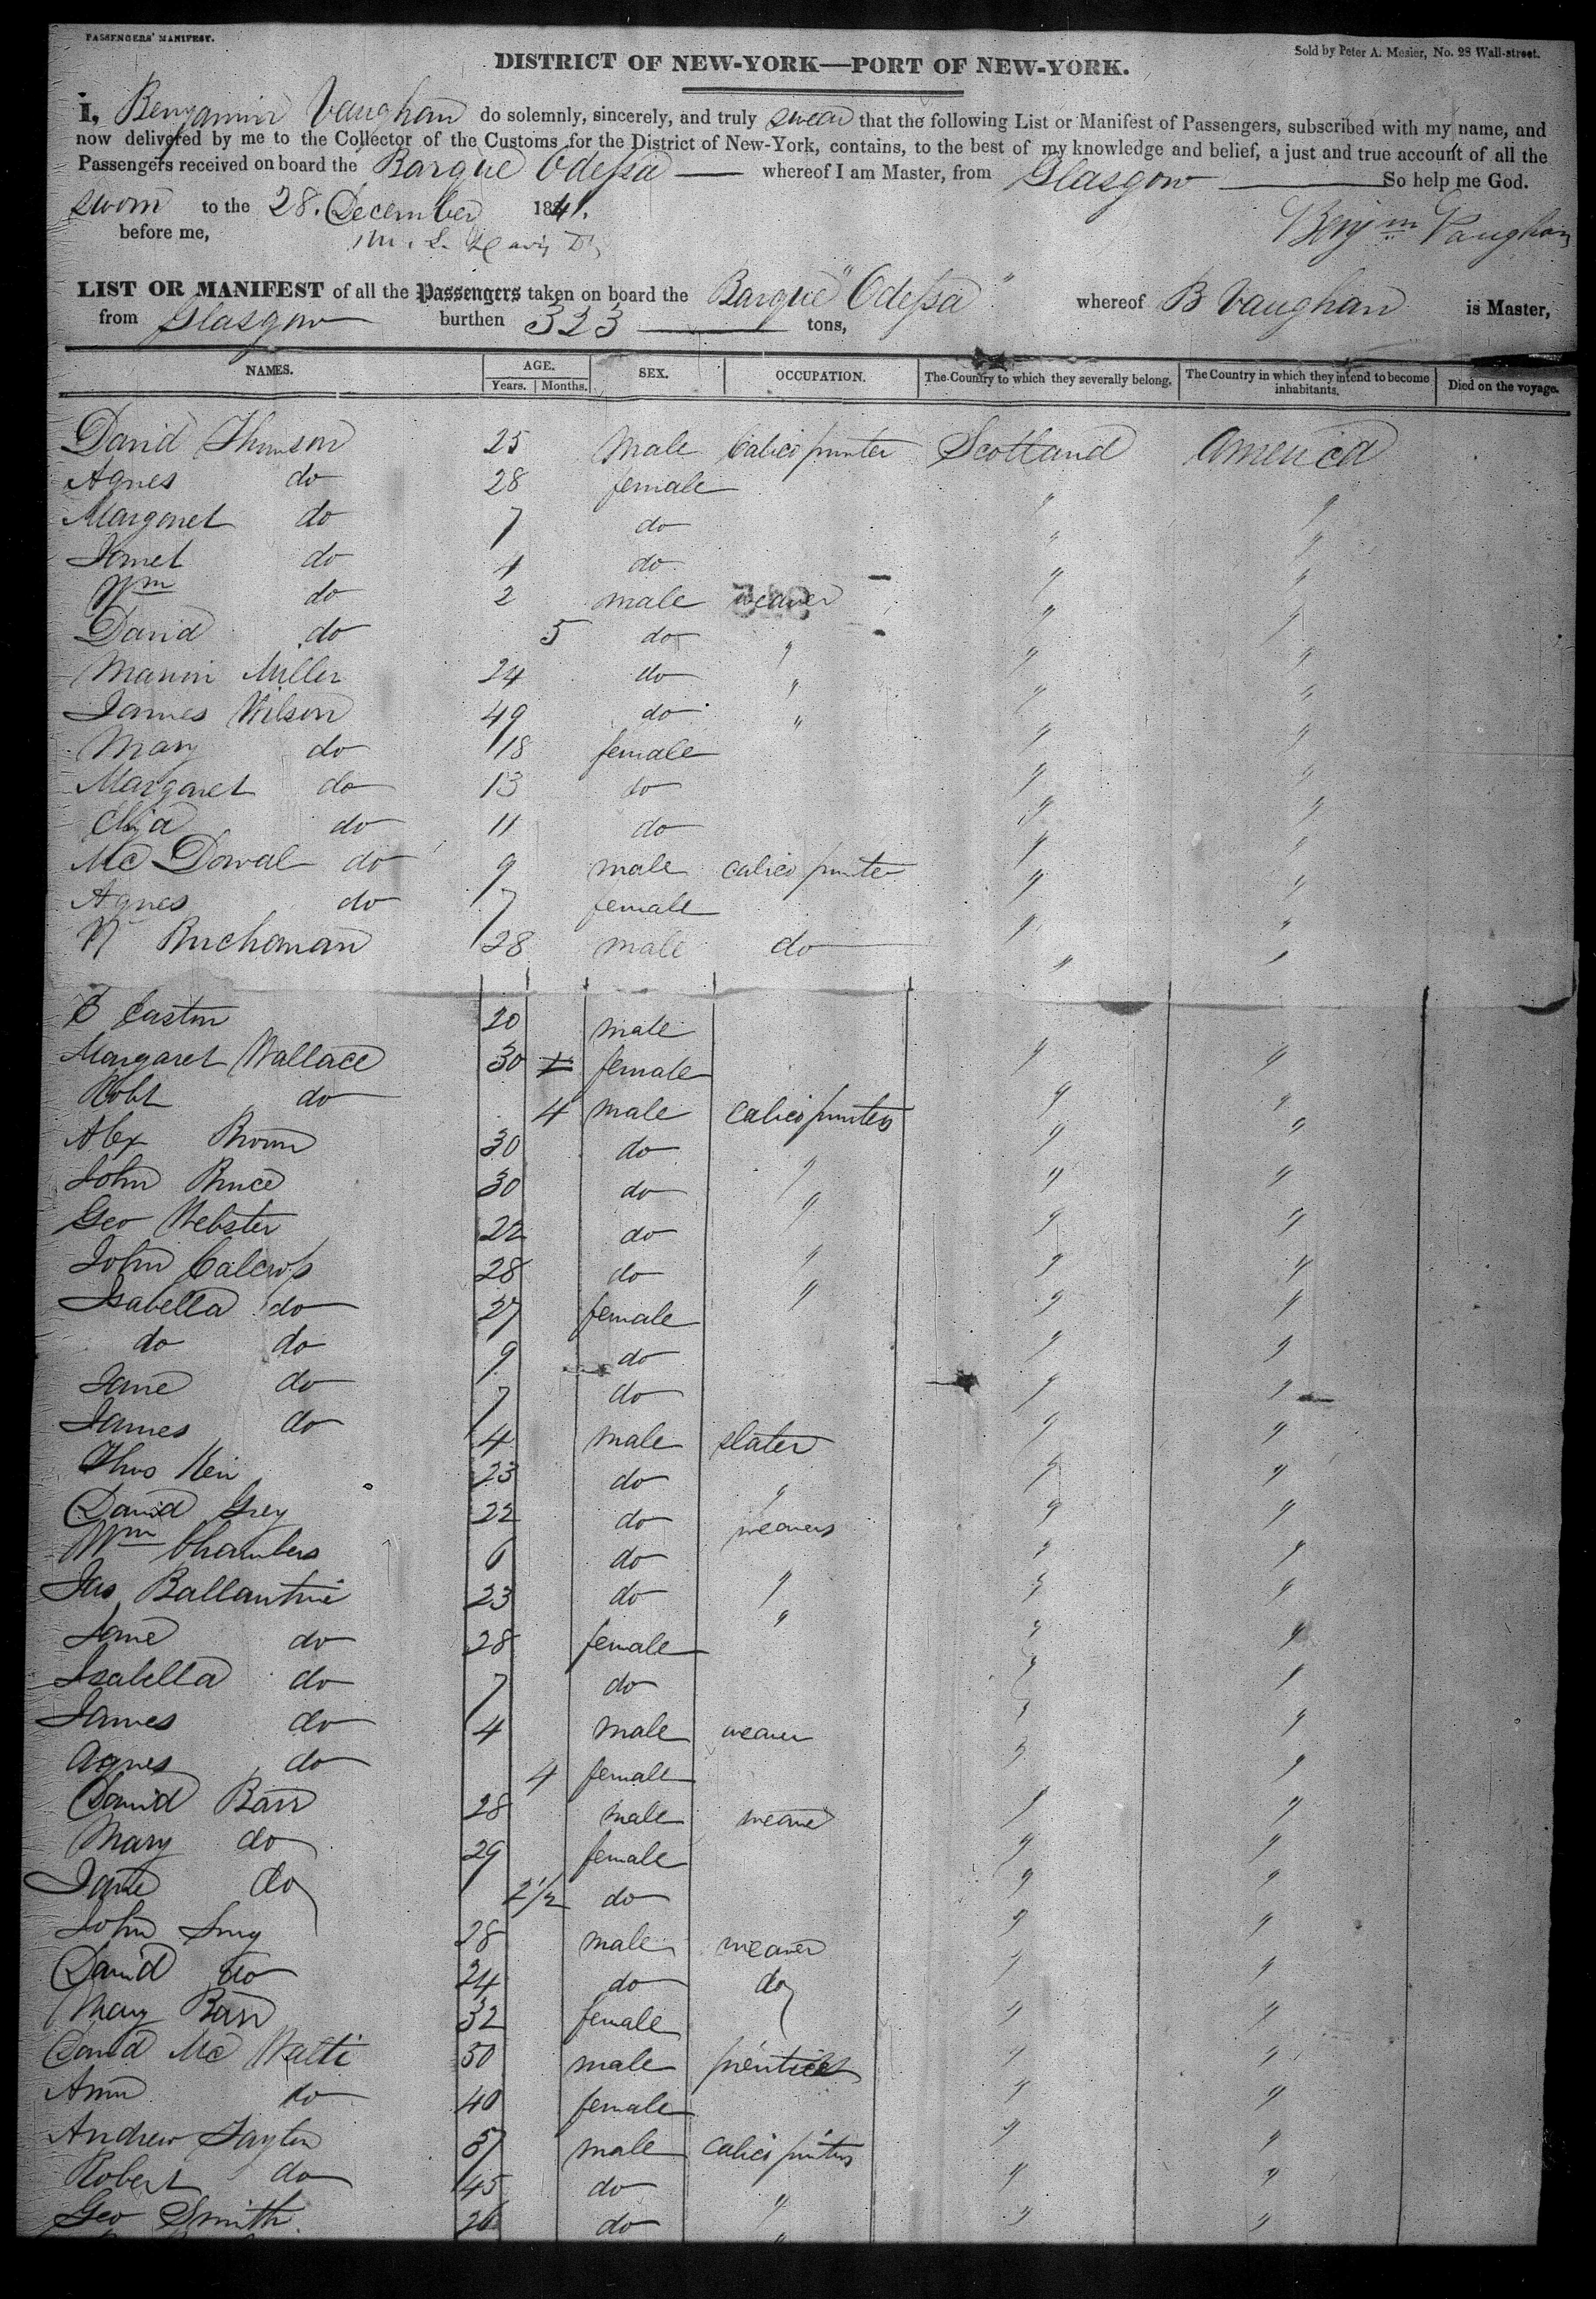 PASSENGERS' MANIFEST.
Sold by Peter A. Mesier, No. 28 Wall-street.
DISTRICT OF NEW-YORK—PORT OF NEW-YORK.
I, Benjamin Vaughan do solemnly, sincerely, and truly swear that the following List or Manifest of Passengers, subscribed with my name, and
now delivered by me to the Collector of the Customs for the District of New-York, contains, to the best of my knowledge and belief, a just and true account of all the
Passengers received on board the Barque Odessa — whereof I am Master, from Glasgow — So help me God.
sworn to the 28. December 1841.
before me,
Benjm Vaughan
LIST OR MANIFEST of all the Passengers taken on board the Barque "Odessa" whereof B Vaughan is Master,
from Glasgow burthen 323 — tons,
NAMES. AGE. SEX. OCCUPATION. The Country to which they severally belong. The Country in which they intend to become inhabitants. Died on the voyage.
Years. Months.
David Thomson 25 male Calico printer Scotland America
Agnes do 28 female " "
Margaret do 7 do " "
Janet do 4 do " "
Wm do 2 male weaver " "
David do 5 do " " "
Miller 24 do " " "
James Wilson 49 do " " "
Mary do 18 female " "
Margaret do 13 do " "
Eliza do 11 do " "
Mc Dowal do 9 male calico printer " "
Agnes do 7 female " "
Buchanan 28 male do " "
Easton 20 male
Margaret Wallace 30 female " "
Robt do 4 male Calico printers " "
Alex Brown 30 do " " "
John Bruce 30 do " " "
Geo Webster 22 do " " "
John Calcross 28 do " " "
Isabella do 27 female " "
do do 9 do " "
Jane do 7 do " "
James do 4 male slater " "
Thos Keir 23 do " " "
David Grey 22 do weavers " "
Wm Chambers 6 do " " "
Jas Ballantine 23 do " " "
Jane do 28 female " "
Isabella do 7 do " "
James do 4 male weaver " "
Agnes do 4 female " "
David Barr 28 male weaver " "
Mary do 29 female " "
Jane do 2 1/2 do " "
John 28 male weaver " "
David do 24 do do " "
Mary Barr 32 female " "
David Mc 50 male " "
Ann do 40 female " "
Andrew Taylor 57 male calico printers " "
Robert do 45 do " " "
Geo Smith 26 do " " "